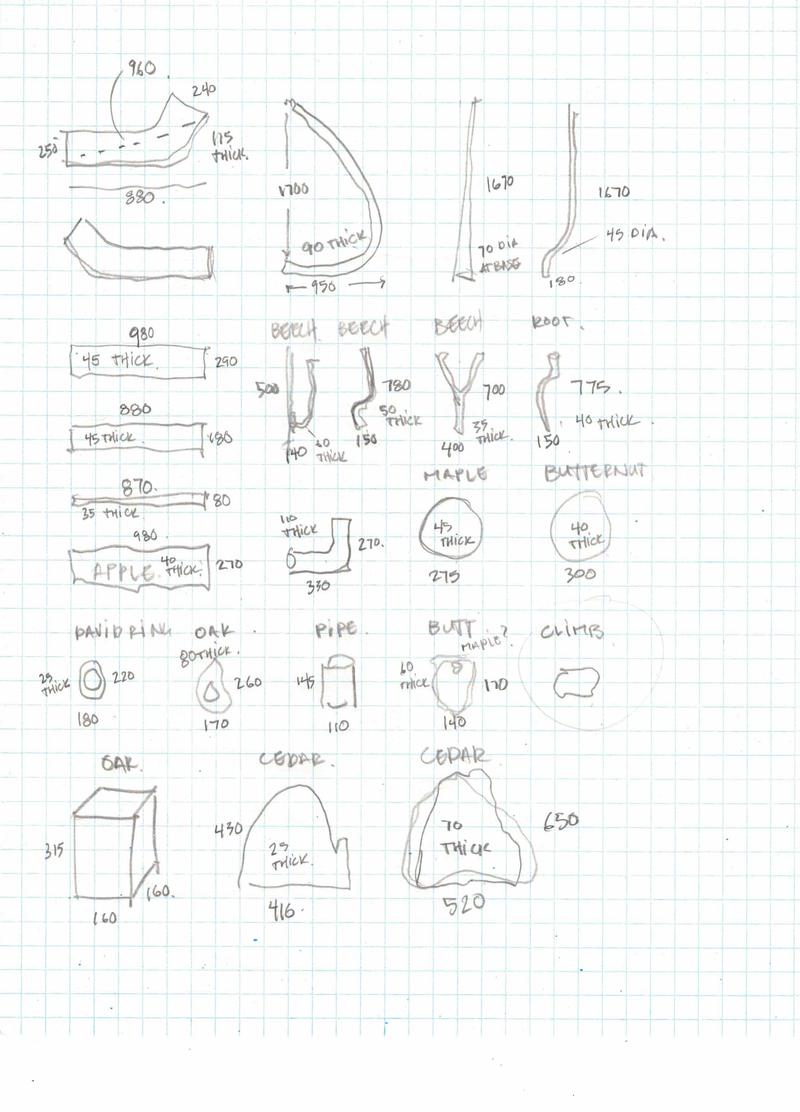 960.
240
250
175
THICK.
880.
1700
90 THICK
950
1670
70 DIA
AT BASE
1670
45 DIA.
180
980
45 THICK.
290
BEECH
500
140
60
THICK
BEECH
780
50
THICK
150
BEECH
700
35
THICK.
400
ROOT.
775.
40 THICK
150
880
45 THICK.
180
870.
35 THICK
80
980
APPLE
40
THICK.
270
110
THICK
270.
330
MAPLE
45
THICK
275
BUTTERNUT
40
THICK
300
DAVID RING
25
THICK
220
180
OAK
80 THICK.
260
170
PIPE.
145
110
BUTT
MAPLE?
60
THICK
170
140
CLIMB
OAK.
315
160.
160
CEDAR.
430
25
THICK.
416.
CEDAR
70
THICK
650
520